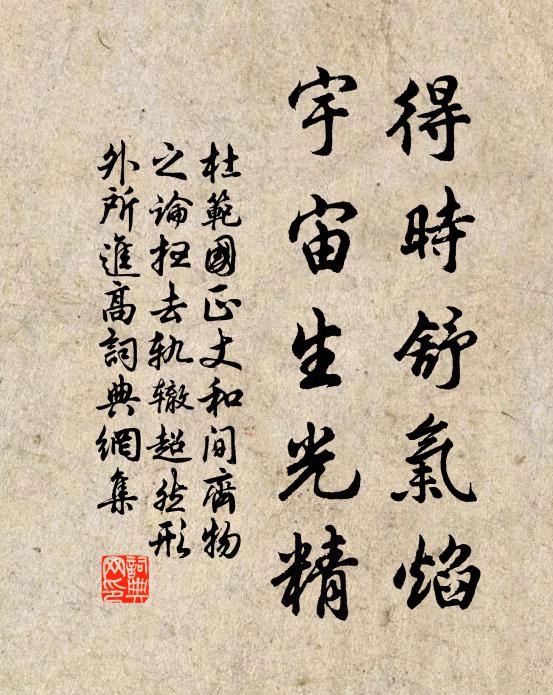 得時舒氣焰
宇宙生光精
杜範國正丈和间齊物
之論抂去軌辙超然形
外所進高詞典網集
詞典
网印